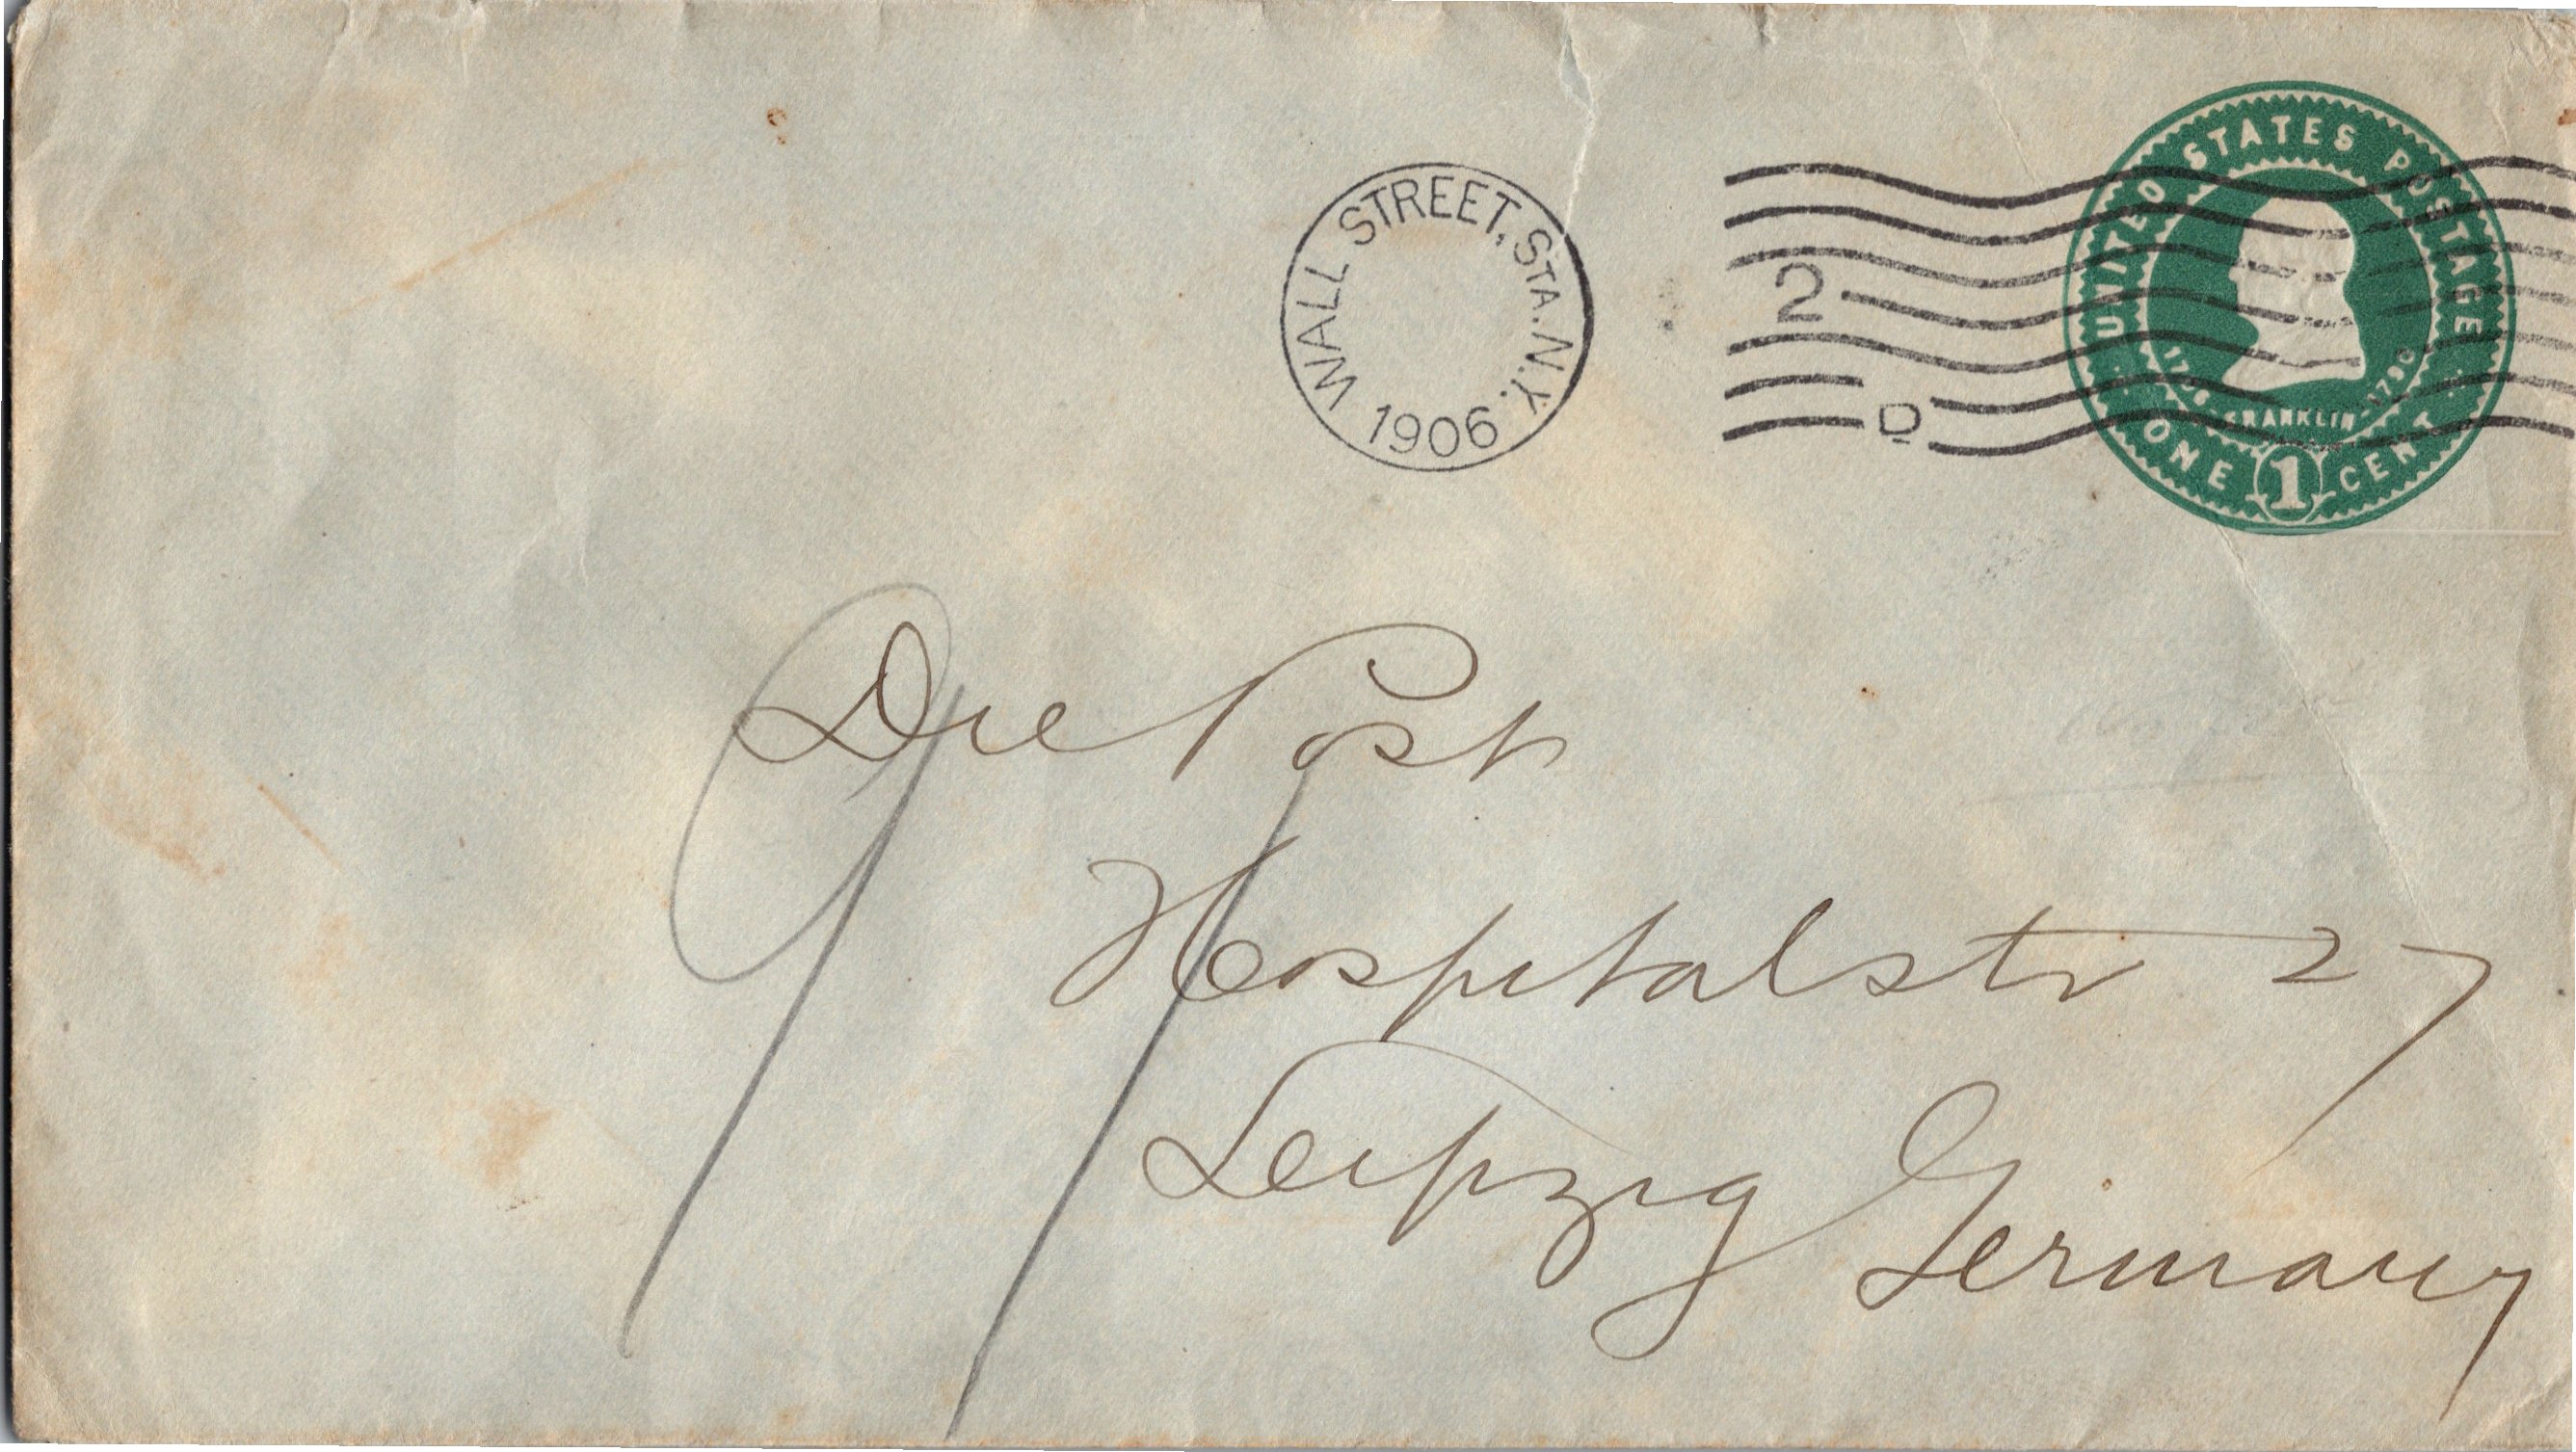 WALL STREET, STA. N.Y.
1906
2
D
UNITED STATES POSTAGE
1706 · FRANKLIN · 1790
ONE 1 CENT
Die Post
Hospitalstr 27
Leipzig Germany